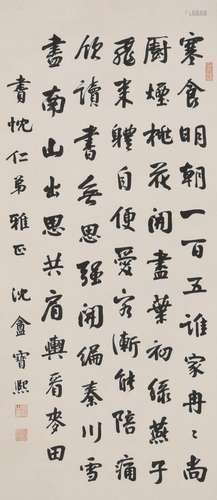 寒食明朝一百五誰家冉々尚
廚煙桃花開盡葉初綠燕子
飛来體自便愛客漸能陪痛
飲讀書無思強開編秦川雪
盡南山出思共肩輿看麥田
耆忱仁弟雅正 沈盦寶熙